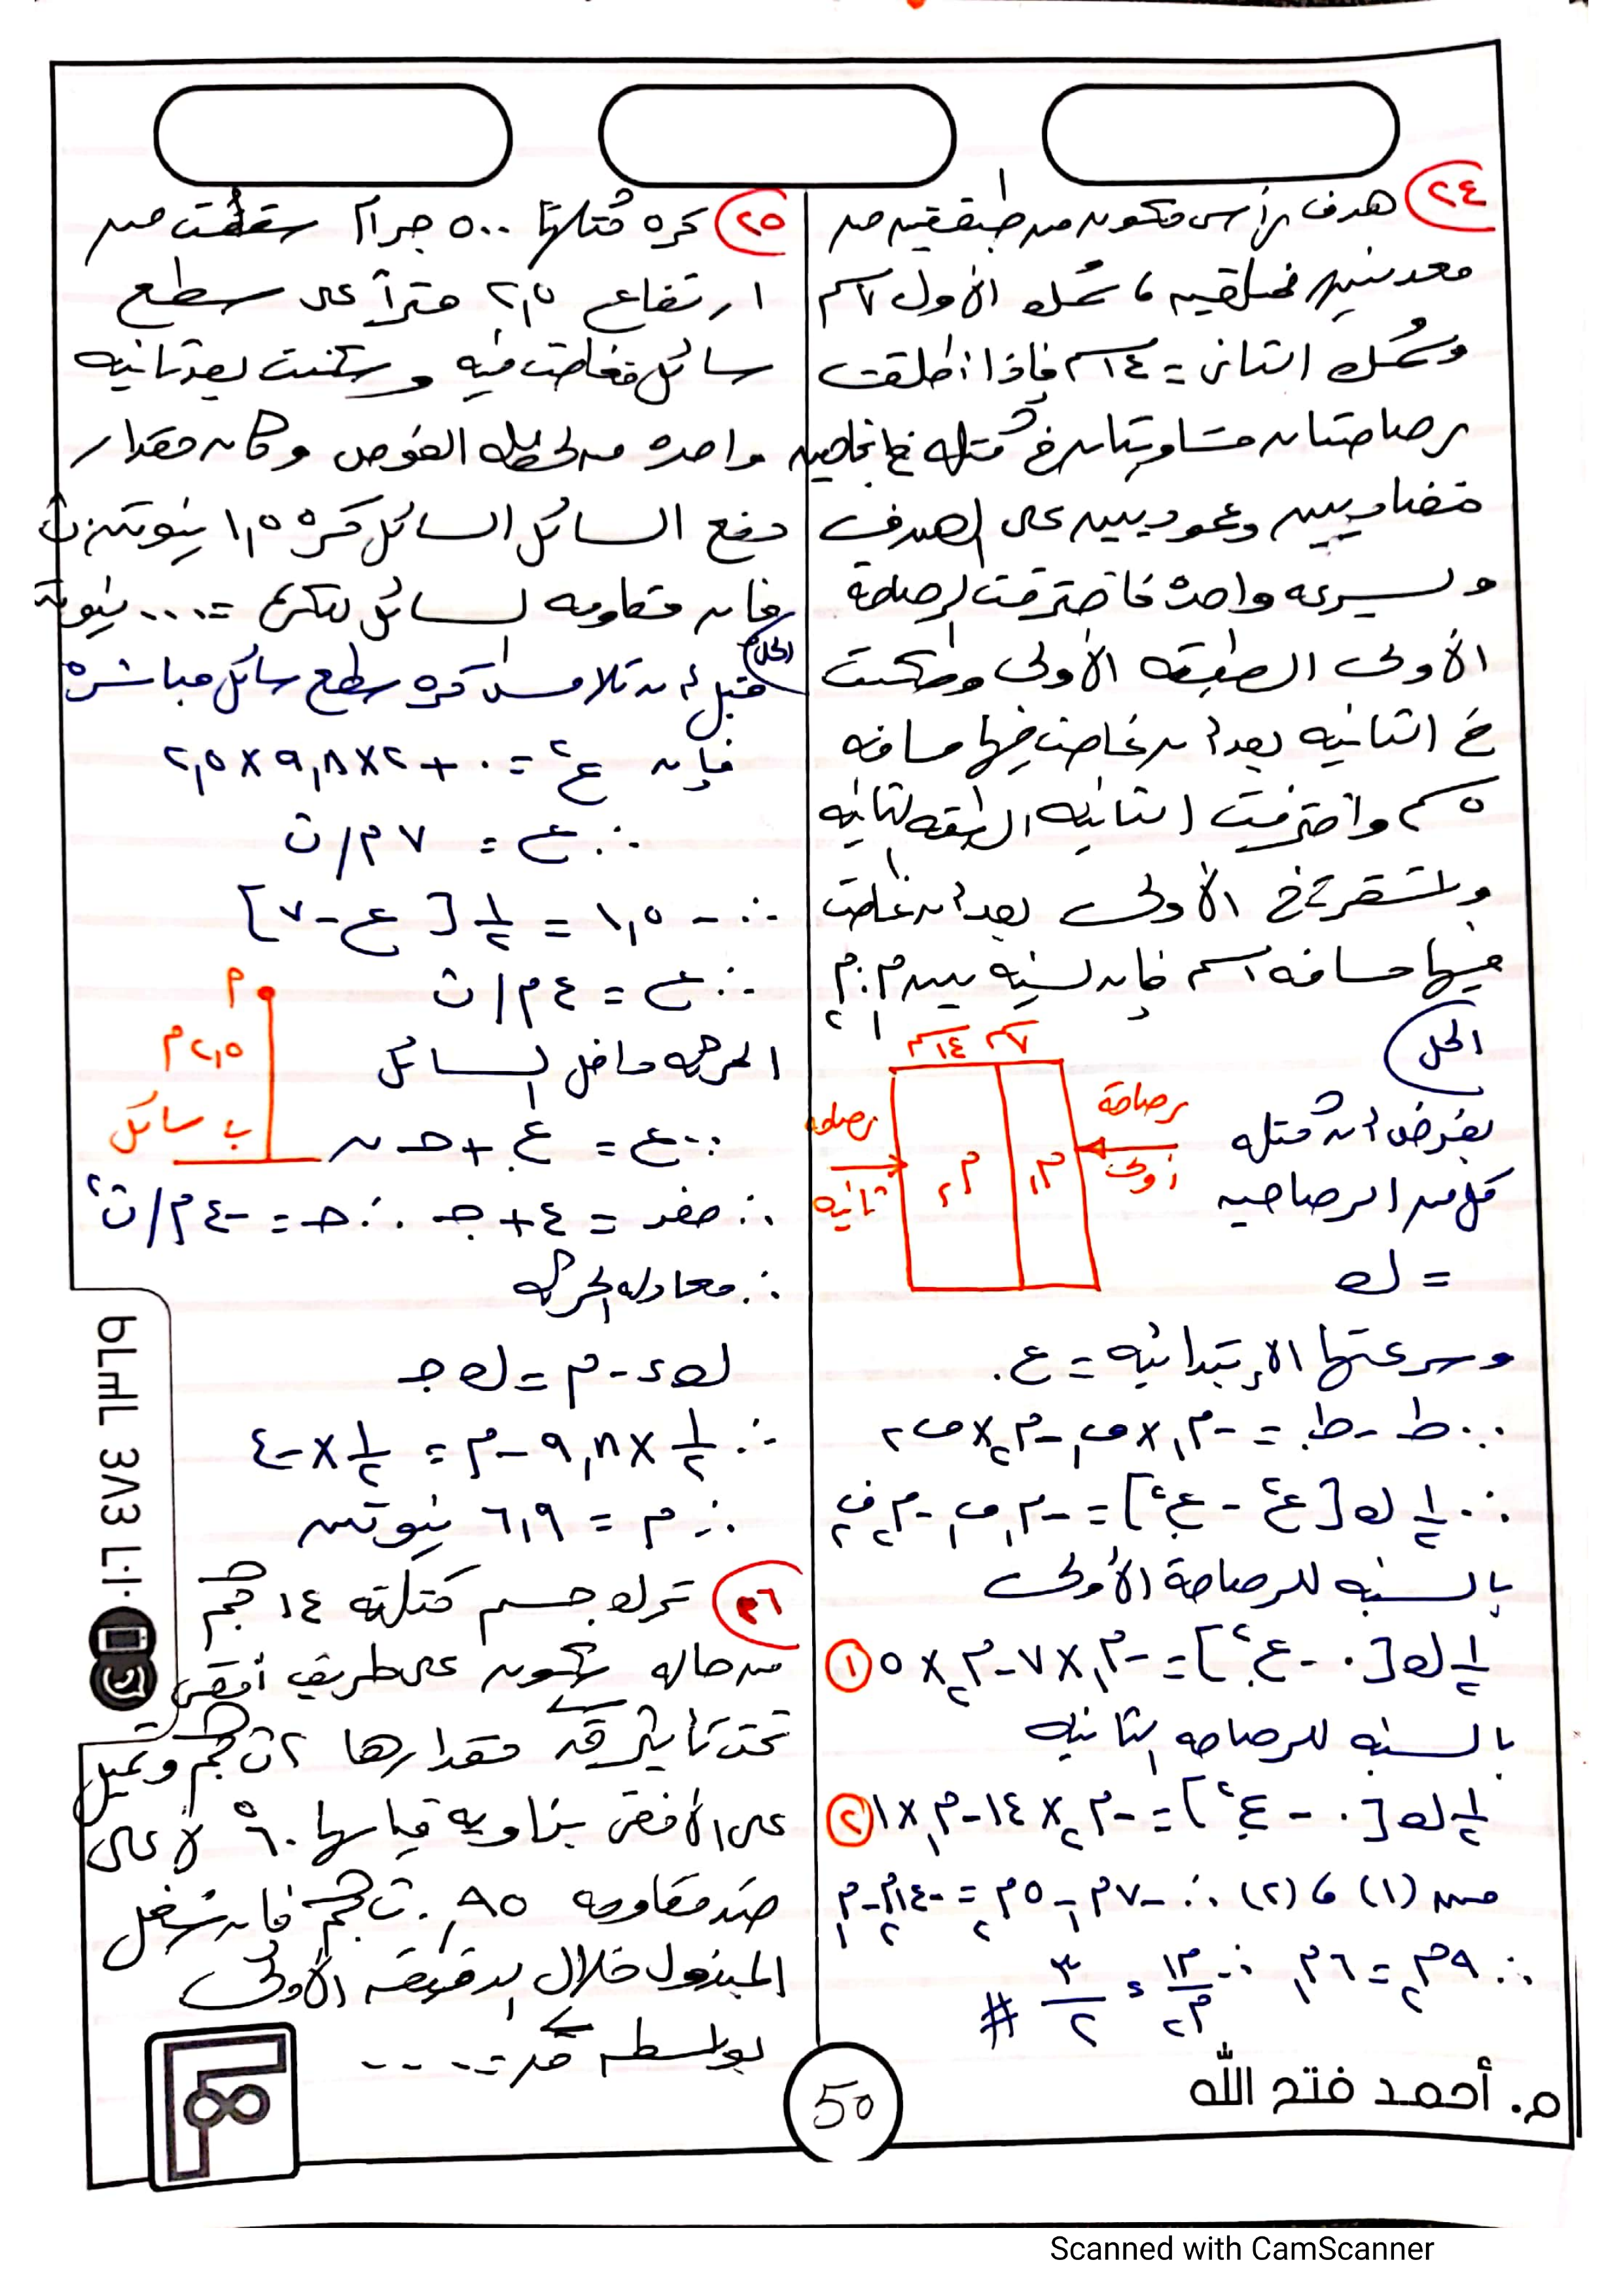 ٢٤ هدف رأسى مكون من طبقتين من
معدنين مختلفين ، سُمك الأول ٧سم
وسُمك الثانى = ١٤سم فإذا أطلقت
رصاصتان متساويتان فى كتله فى اتجاهين
متضادين وعموديين على الهدف
وبسرعه واحده فاخترقت الرصاصة
الأولى الطبقه الأولى وسكنت
فى الثانيه بعد أن غاصت فيها مسافه
٥ سم واخترقت الثانيه الطبقه الثانيه
واستقرت فى الأولى بعد أن غاصت
فيها مسافه ١سم فإن نسبة بين م١ : م٢
الحل
بفرض أن كتله
كل من الرصاصتين
= ك
١٤سم ٧سم
رصاصة أولى
رصاصه ثانيه
م٢ م١
وسرعتها الإبتدائيه = ع.
∵ ط - ط. = -م١ × ف١ - م٢ × ف٢
∴ ½ ك [ع² - ع.²] = -م١ ف١ - م٢ ف٢
بالنسبه للرصاصة الأولى
½ ك [٠ - ع.²] = -م١ × ٧ - م٢ × ٥ ①
بالنسبه للرصاصه الثانيه
½ ك [٠ - ع.²] = -م٢ × ١٤ - م١ × ١ ②
من (١) ، (٢) ∴ -٧م١ - ٥م٢ = -١٤م٢ - م١
∴ ٩م٢ = ٦م١ ∴ م١/م٢ = ٣/٢ #
٢٥ كره كتلتها ٥٠٠ جرام سقطت من
ارتفاع ٢,٥ متراً على سطح
سائل فغاصت فيه وسكنت بعد ثانيه
واحده من لحظه الغوص وكان مقدار
دفع السائل السائل كره ١,٥ نيوتن.ث
فإن مقاومه السائل للكره = ... نيوتن
الحل
قبل أن تلامس كره سطح سائل مباشره
فإن ع² = ٠ + ٢ × ٩,٨ × ٢,٥
∴ ع = ٧ م/ث
∴ -١,٥ = ½ [ع - ٧]
∴ ع = ٤ م/ث
الحركه داخل السائل
أ
٢,٥ م
ب سائل
∵ ع = ع. + حـ ن
∴ صفر = ٤ + جـ ∴ حـ = -٤ م/ث²
∴ معادله الحركه
ك ء - م = ك جـ
∴ ½ × ٩,٨ - م = ½ × -٤
∴ م = ٦,٩ نيوتن
٢٦ ترك جسم كتلته ١٤ كجم
من حاله سكون على طريق أفقى
تحت تأثير قوة مقدارها ٢ ث كجم وتميل
على الأفقى بزاويه قياسها ٦٠° لأعلى
ضد مقاومه ٠,٨٥ ث كجم فإن شغل
المبذول خلال الدقيقه الأولى
بواسطه ق = ....
٠١٠٢ ٤٨٤ ٦٣٦٩
50
م. أحمد فتح الله
Scanned with CamScanner